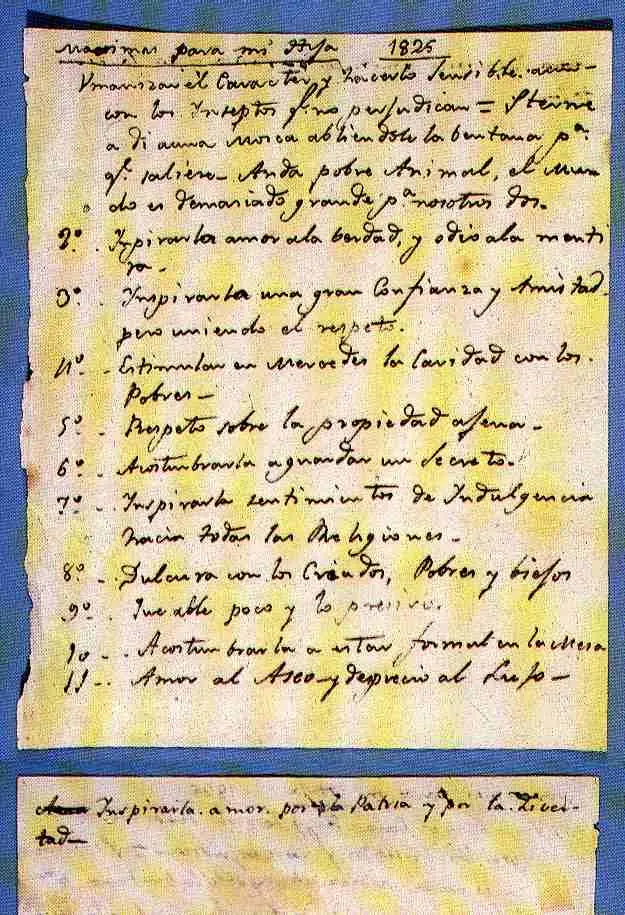 Maximas para mi Hija 1825
Umanizar el Caracter y hacerlo sensible aun
con los Inseptos q.e no perjudican = Sterne
a di auna Mosca abliendole la bentana p.a
q.e saliere_ Anda pobre Animal, el Mun
do es demaciado grande p.a nosotros dos_
2º - Inpirarla amor ala berdad, y odio ala menti
ra_
3º - Inspirarla una gran Confianza y Amistad
pero uniendo el respeto.
4º - Estimular en Mercedes la Caridad con los
Pobres_
5º - Respeto sobre la propiedad ajena_
6º - Acostumbrarla a guardar un Secreto_
7º - Inspirarla sentimientos de Indulgencia
hacia todas las Religiones_
8º - Dulcura con los Criados, Pobres y biejos
9º Que able poco y lo presiso.
10 - Acostumbrarla a estar formal en la Mesa
11 - Amor al Aseo y desprecio al Lujo_
Inspirarla amor por la Patria y por la Liver-
tad_